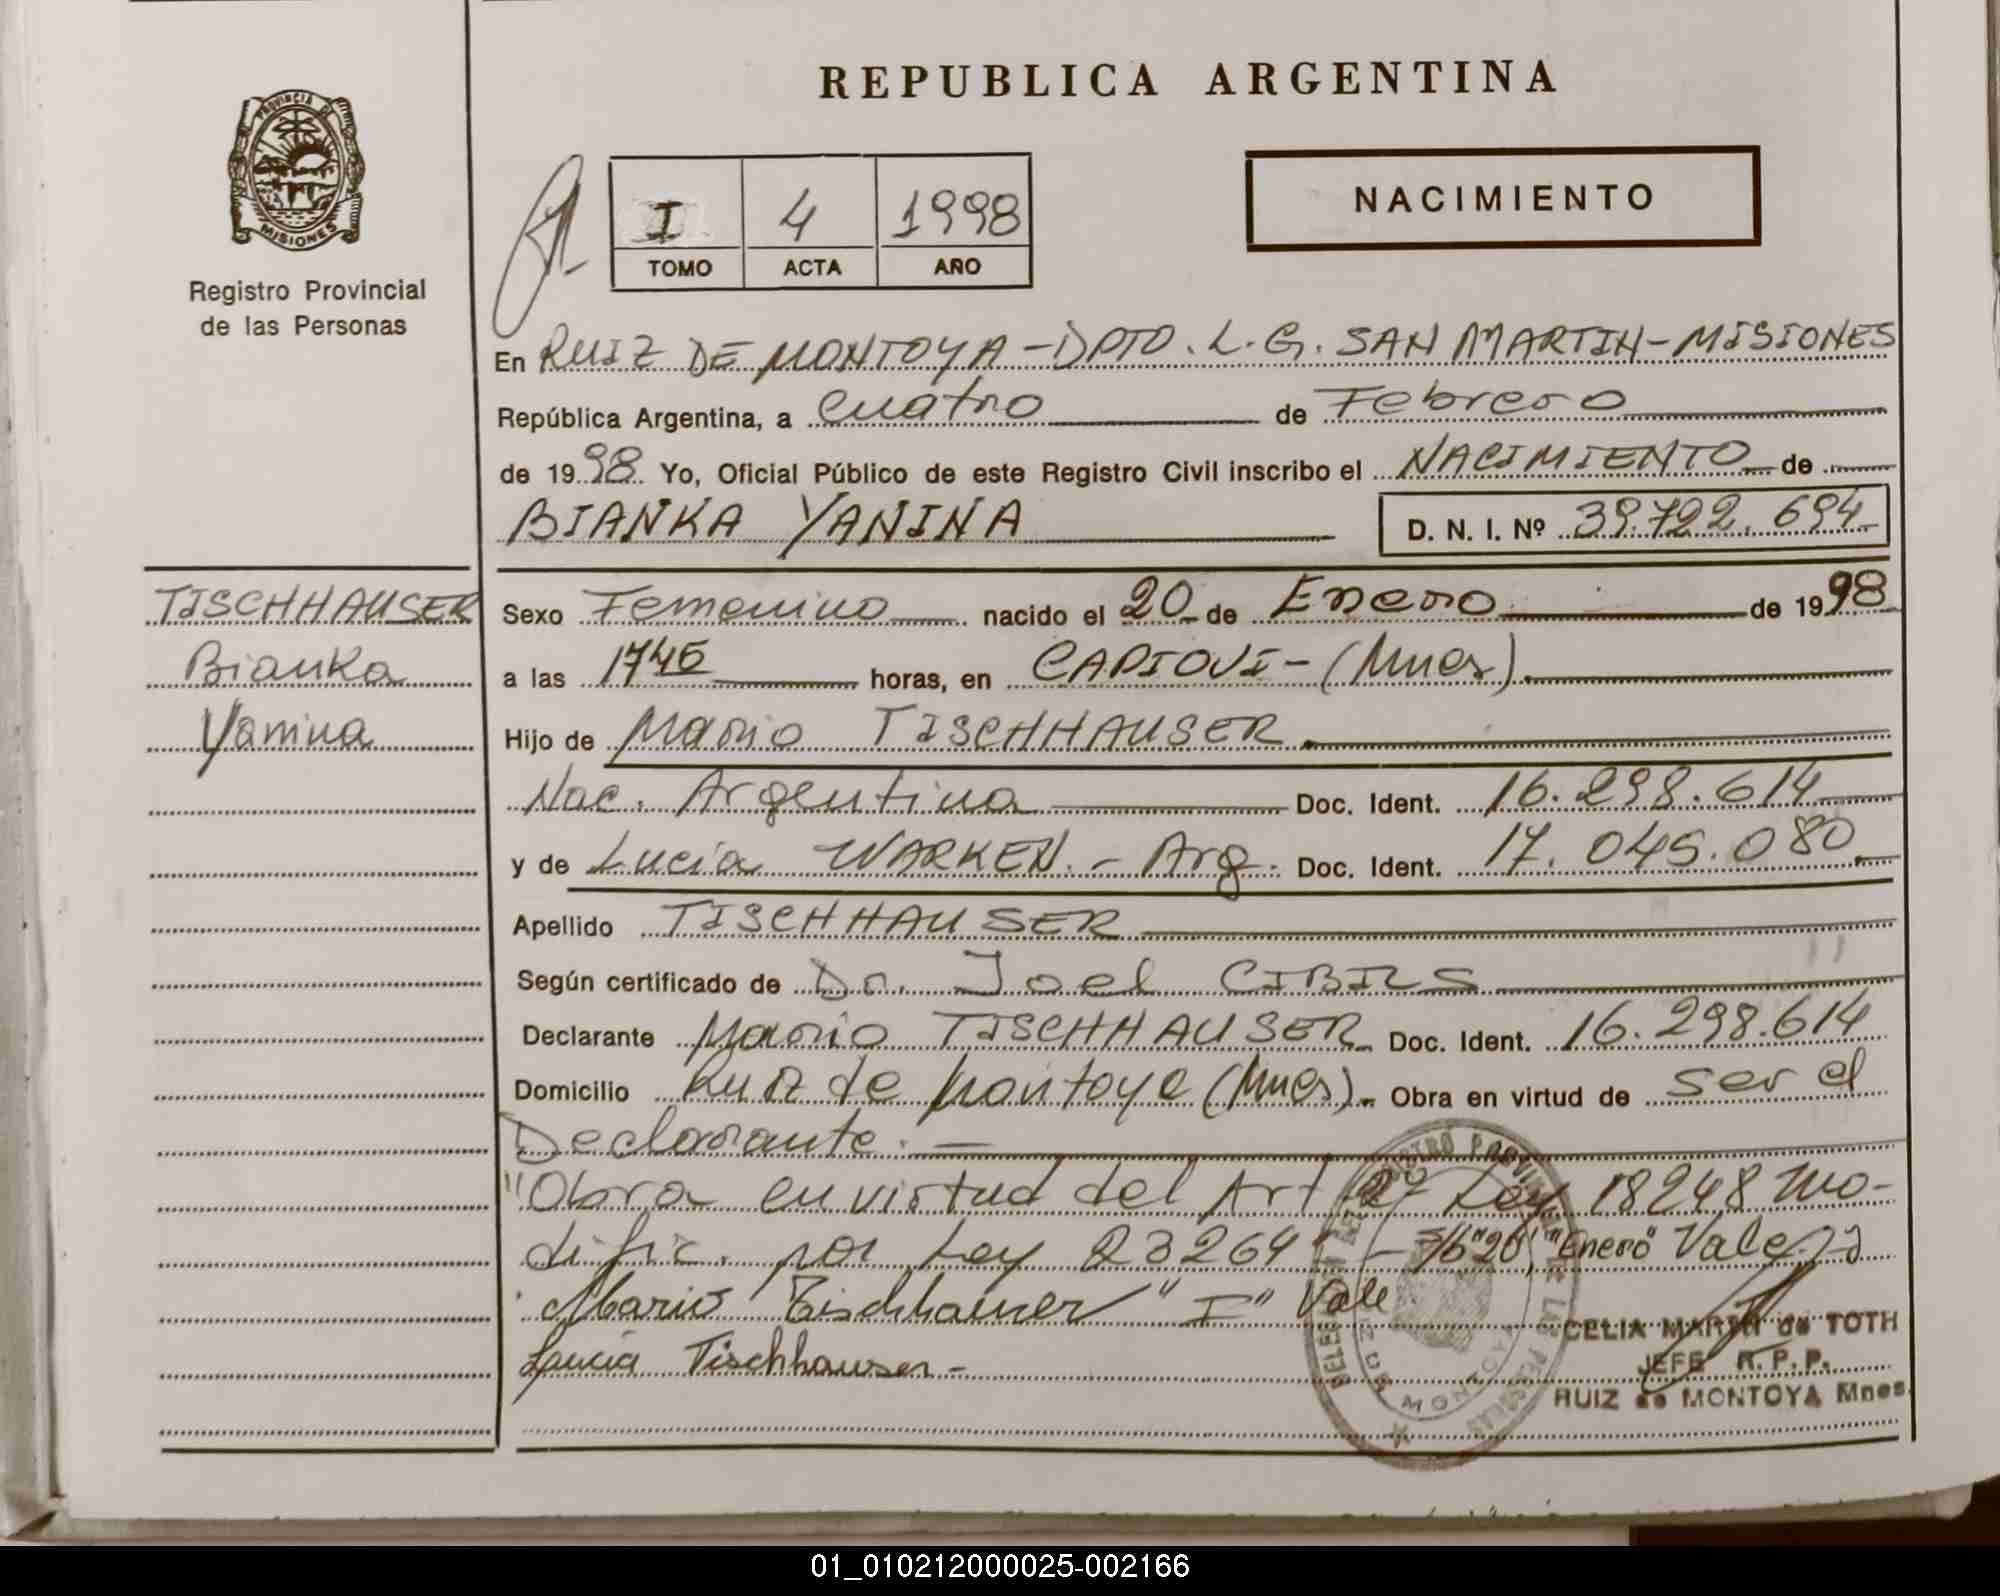 REPUBLICA ARGENTINA
PROVINCIA DE
MISIONES
Registro Provincial
de las Personas
I 4 1998
TOMO ACTA AÑO
NACIMIENTO
En RUIZ DE MONTOYA - DPTO. L. G. SAN MARTIN - MISIONES
República Argentina, a cuatro de Febrero
de 1998 Yo, Oficial Público de este Registro Civil inscribo el NACIMIENTO de
BIANKA YANINA D. N. I. Nº 39.722.694
TISCHHAUSER
Bianka
Yanina
Sexo Femenino nacido el 20 de Enero de 1998
a las 1745 horas, en CAPIOVI - (Mnes).
Hijo de Mario TISCHHAUSER
Nac. Argentina Doc. Ident. 16.298.614
y de Lucia WARKEN. - Arg. Doc. Ident. 17.045.080
Apellido TISCHHAUSER
Según certificado de Dr. Joel CIBILS
Declarante Mario TISCHHAUSER Doc. Ident. 16.298.614
Domicilio Ruiz de Montoya (Mnes). Obra en virtud de ser el
Declarante. —
"Obra en virtud del Art 2º Ley 18248 mo-
dific. por Ley 23264" - s/b "20", "Enero" Vale
Mario Tischhauser "I" Vale
Lucia Tischhauser -
CELIA de TOTH
JEFE R. P. P.
RUIZ de MONTOYA Mnes.
01_010212000025-002166